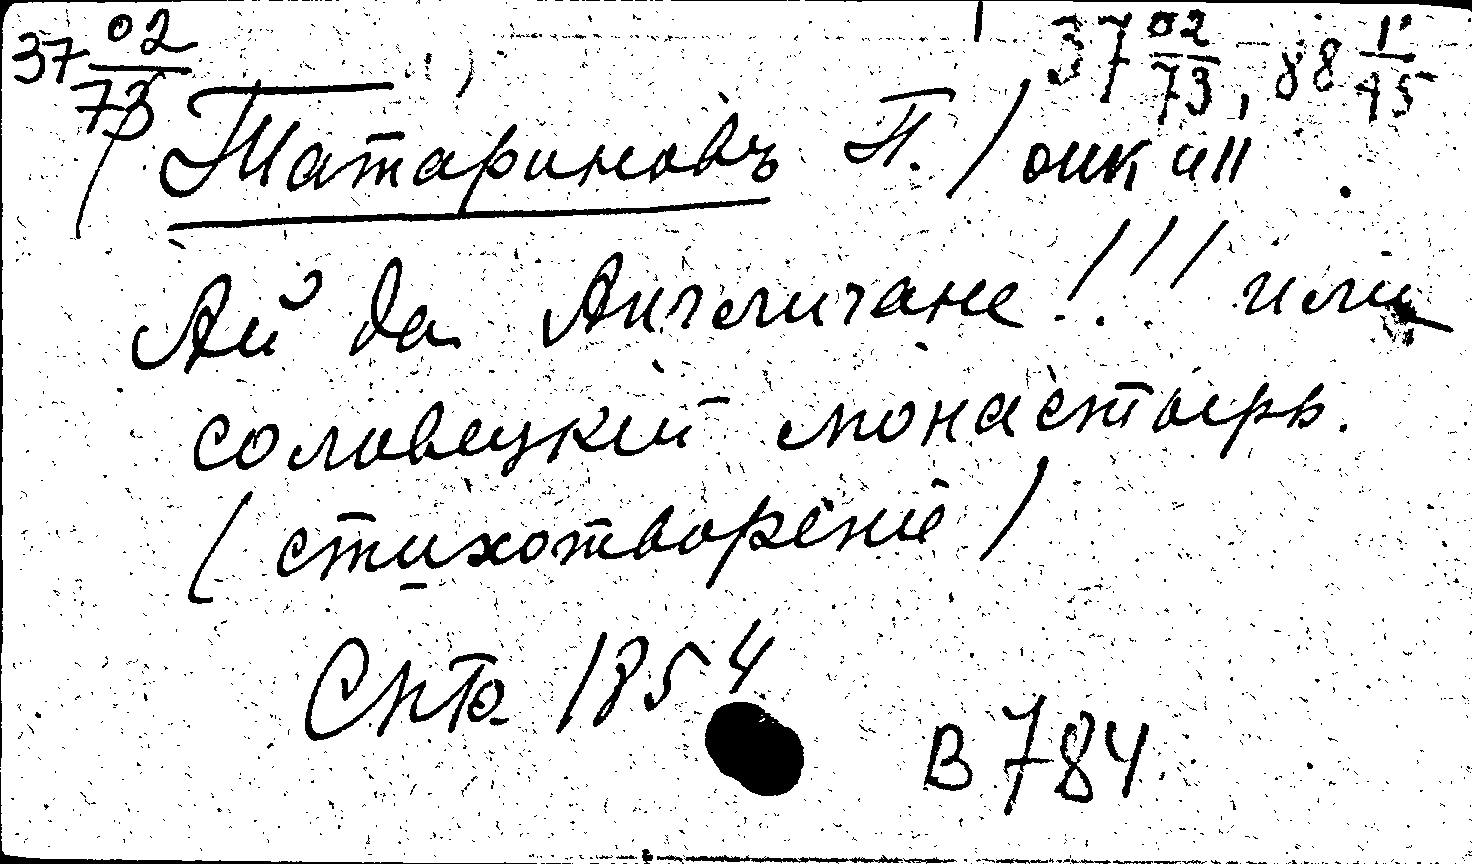 37 02/73
37 02/73, 88 1°/45
(Татариновъ П.)
Ай да Англичане!!! или
соловецкій монастырь.
(стихотвореніе)
Спб. 1854
В 784